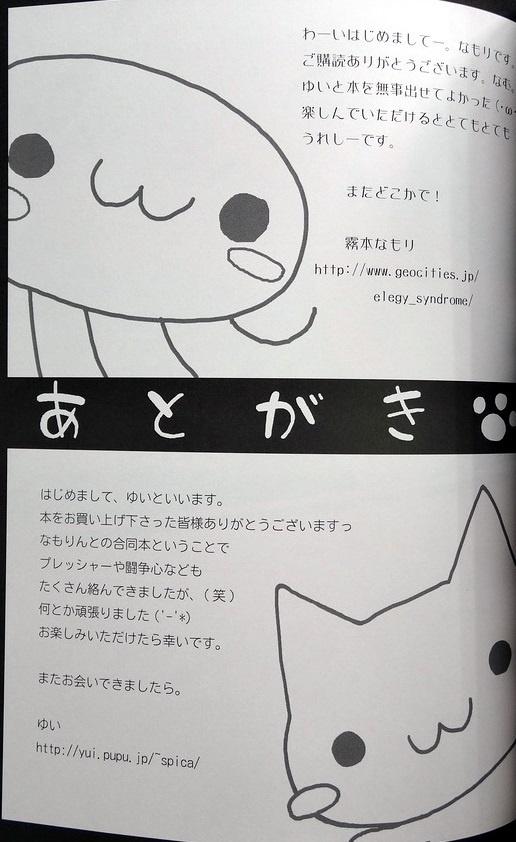 わーいはじめましてー。なもりです。
ご購読ありがとうございます。なむ。
ゆいと本を無事出せてよかった(・ω・
楽しんでいただけるととてもとても
うれしーです。
またどこかで！
霧本なもり
http://www.geocities.jp/
elegy_syndrome/
あとがき
はじめまして、ゆいといいます。
本をお買い上げ下さった皆様ありがとうございますっ
なもりんとの合同本ということで
プレッシャーや闘争心なども
たくさん絡んできましたが、（笑）
何とか頑張りました('-'*)
お楽しみいただけたら幸いです。
またお会いできましたら。
ゆい
http://yui.pupu.jp/~spica/